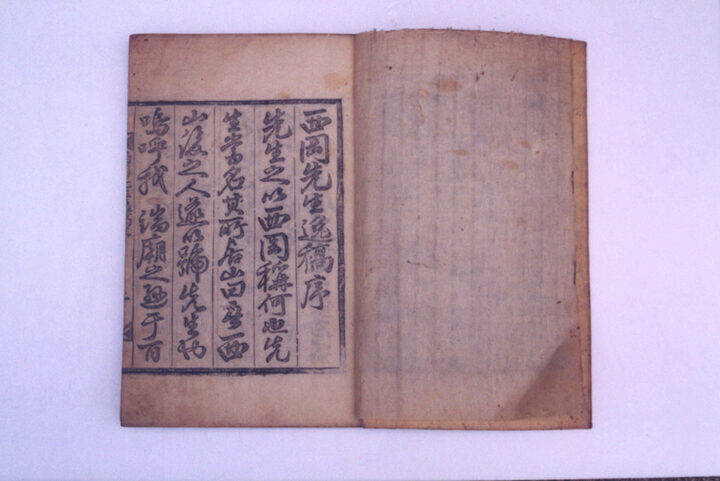 西岡先生逸稿序
先生之以西岡稱何也先
生嘗名其所居山曰登西
山後之人遂以號先生也
嗚呼我 端廟之遜于百